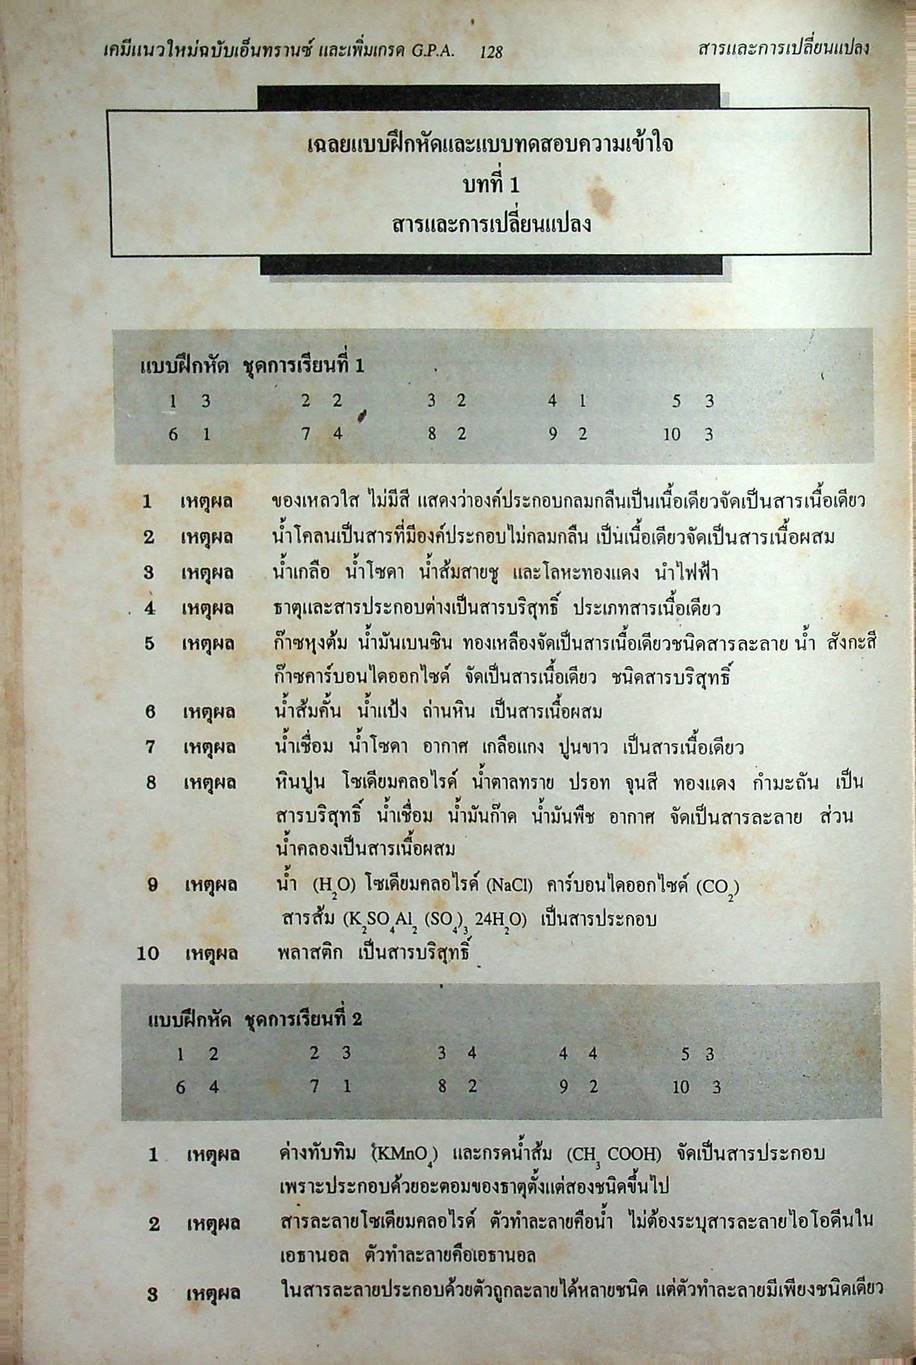 เคมีแนวใหม่ฉบับเอ็นทรานซ์ และเพิ่มเกรด G.P.A. 128 สารและการเปลี่ยนแปลง
เฉลยแบบฝึกหัดและแบบทดสอบความเข้าใจ
บทที่ 1
สารและการเปลี่ยนแปลง
แบบฝึกหัด ชุดการเรียนที่ 1
1 3 2 2 3 2 4 1 5 3
6 1 7 4 8 2 9 2 10 3
1 เหตุผล ของเหลวใส ไม่มีสี แสดงว่าองค์ประกอบกลมกลืนเป็นเนื้อเดียวจัดเป็นสารเนื้อเดียว
2 เหตุผล น้ำโคลนเป็นสารที่มีองค์ประกอบไม่กลมกลืน เป็นเนื้อเดียวจัดเป็นสารเนื้อผสม
3 เหตุผล น้ำเกลือ น้ำโซดา น้ำส้มสายชู และโลหะทองแดง นำไฟฟ้า
4 เหตุผล ธาตุและสารประกอบต่างเป็นสารบริสุทธิ์ ประเภทสารเนื้อเดียว
5 เหตุผล ก๊าซหุงต้ม น้ำมันเบนซิน ทองเหลืองจัดเป็นสารเนื้อเดียวชนิดสารละลาย น้ำ สังกะสี
ก๊าซคาร์บอนไดออกไซด์ จัดเป็นสารเนื้อเดียว ชนิดสารบริสุทธิ์
6 เหตุผล น้ำส้มคั้น น้ำแป้ง ถ่านหิน เป็นสารเนื้อผสม
7 เหตุผล น้ำเชื่อม น้ำโซดา อากาศ เกลือแกง ปูนขาว เป็นสารเนื้อเดียว
8 เหตุผล หินปูน โซเดียมคลอไรด์ น้ำตาลทราย ปรอท จุนสี ทองแดง กำมะถัน เป็น
สารบริสุทธิ์ น้ำเชื่อม น้ำมันก๊าด น้ำมันพืช อากาศ จัดเป็นสารละลาย ส่วน
น้ำคลองเป็นสารเนื้อผสม
9 เหตุผล น้ำ (H₂O) โซเดียมคลอไรด์ (NaCl) คาร์บอนไดออกไซด์ (CO₂)
สารส้ม (K₂SO₄Al₂ (SO₄)₃ 24H₂O) เป็นสารประกอบ
10 เหตุผล พลาสติก เป็นสารบริสุทธิ์
แบบฝึกหัด ชุดการเรียนที่ 2
1 2 2 3 3 4 4 4 5 3
6 4 7 1 8 2 9 2 10 3
1 เหตุผล ด่างทับทิม (KMnO₄) และกรดน้ำส้ม (CH₃ COOH) จัดเป็นสารประกอบ
เพราะประกอบด้วยอะตอมของธาตุตั้งแต่สองชนิดขึ้นไป
2 เหตุผล สารละลายโซเดียมคลอไรด์ ตัวทำละลายคือน้ำ ไม่ต้องระบุสารละลายไอโอดีนใน
เอธานอล ตัวทำละลายคือเอธานอล
3 เหตุผล ในสารละลายประกอบด้วยตัวถูกละลายได้หลายชนิด แต่ตัวทำละลายมีเพียงชนิดเดียว